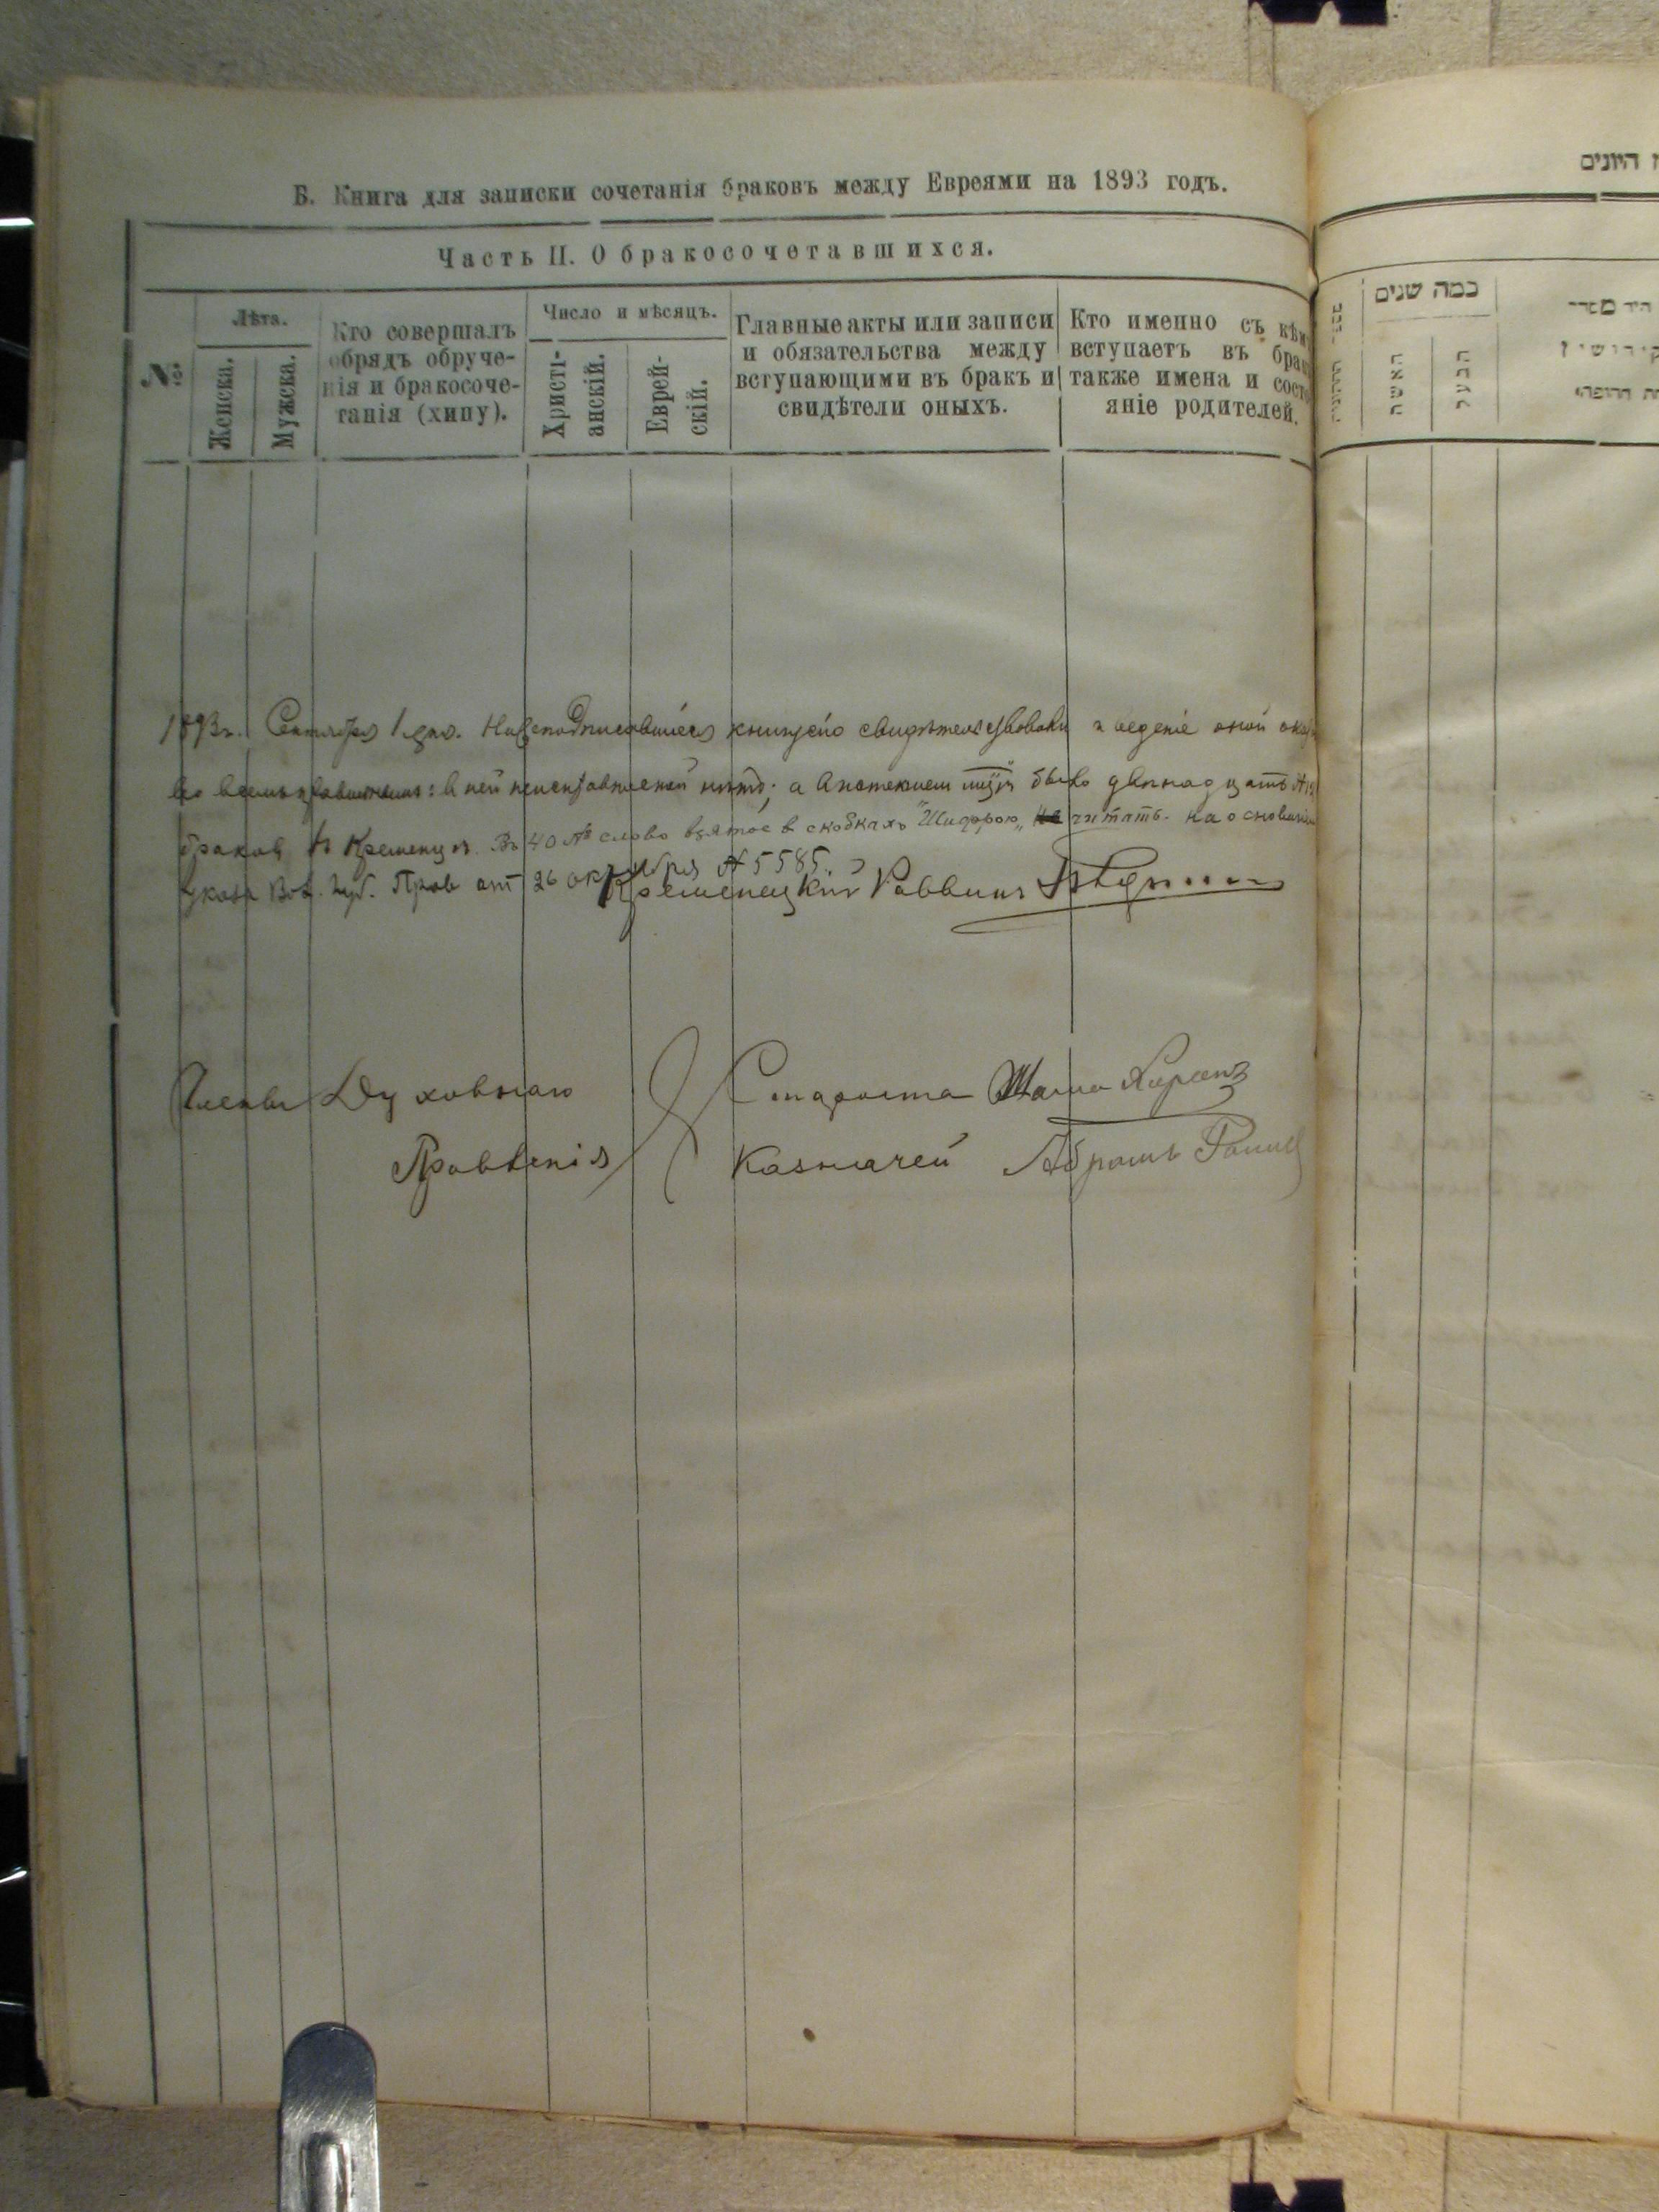 Б. Книга для записки сочетанія браковъ между Евреями на 1893 годъ.
Часть II. О бракосочетавшихся.
№
Лѣта.
Женска.
Мужска.
Кто совершалъ
обрядъ обруче-
нія и бракосоче-
танія (хипу).
Число и мѣсяцъ.
Христі-
анскій.
Еврей-
скій.
Главные акты или записи
и обязательства между
вступающими въ бракъ и
свидѣтели оныхъ.
Кто именно съ кѣм
вступаетъ въ бра
также имена и сост
яніе родителей.
1893г. Сентября 1 дня. Нижеподписавшіеся книгу сію свидѣтельствовали и веденіе оной
во всемъ правильнымъ: в ней неисправностей нѣтъ; а в истекшем было двѣнадцать №12
браковъ Кременцъ. Въ 40 № слово взятое в скобкахъ "Шифрою„ не читать. на основаніи
указа Вол. Губ. Прав от 26 октября № 5585.
Кременецкій Раввинъ
Члены Духовнаго
Правленія
Староста
Казначей Абрамъ
ז היונים
כמה שנים
האשה
הבעל
קידושין